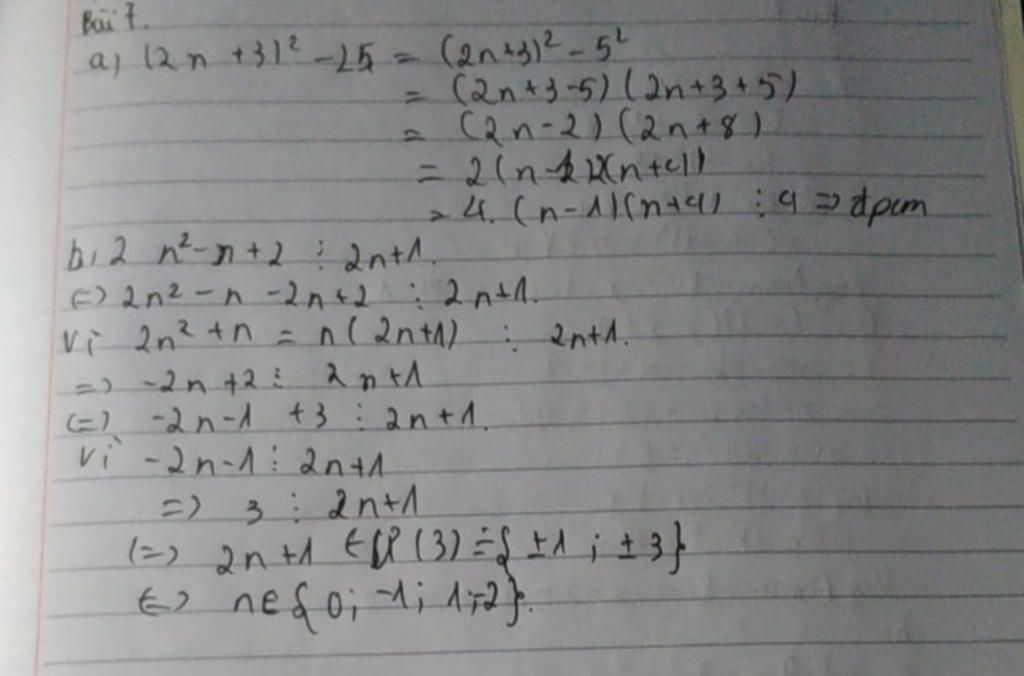 Bài 7.
a, (2n +3)² -25 = (2n+3)² - 5²
= (2n+3-5) (2n+3+5)
= (2n-2) (2n+8)
= 2(n-1)2(n+4)
= 4. (n-1)(n+4) ⋮ 4 => đpcm
b, 2 n²-n+2 ⋮ 2n+1.
(=) 2n² - n - 2n+2 ⋮ 2n+1.
Vì 2n² + n = n( 2n+1) ⋮ 2n+1.
=> -2n +2 ⋮ 2n+1
(=) -2n-1 +3 ⋮ 2n+1.
Vì -2n-1 ⋮ 2n+1
=> 3 ⋮ 2n+1
(=> 2n+1 ∈ Ư (3) = { ±1 ; ±3}
(=> n∈{ 0; -1; 1; -2}.